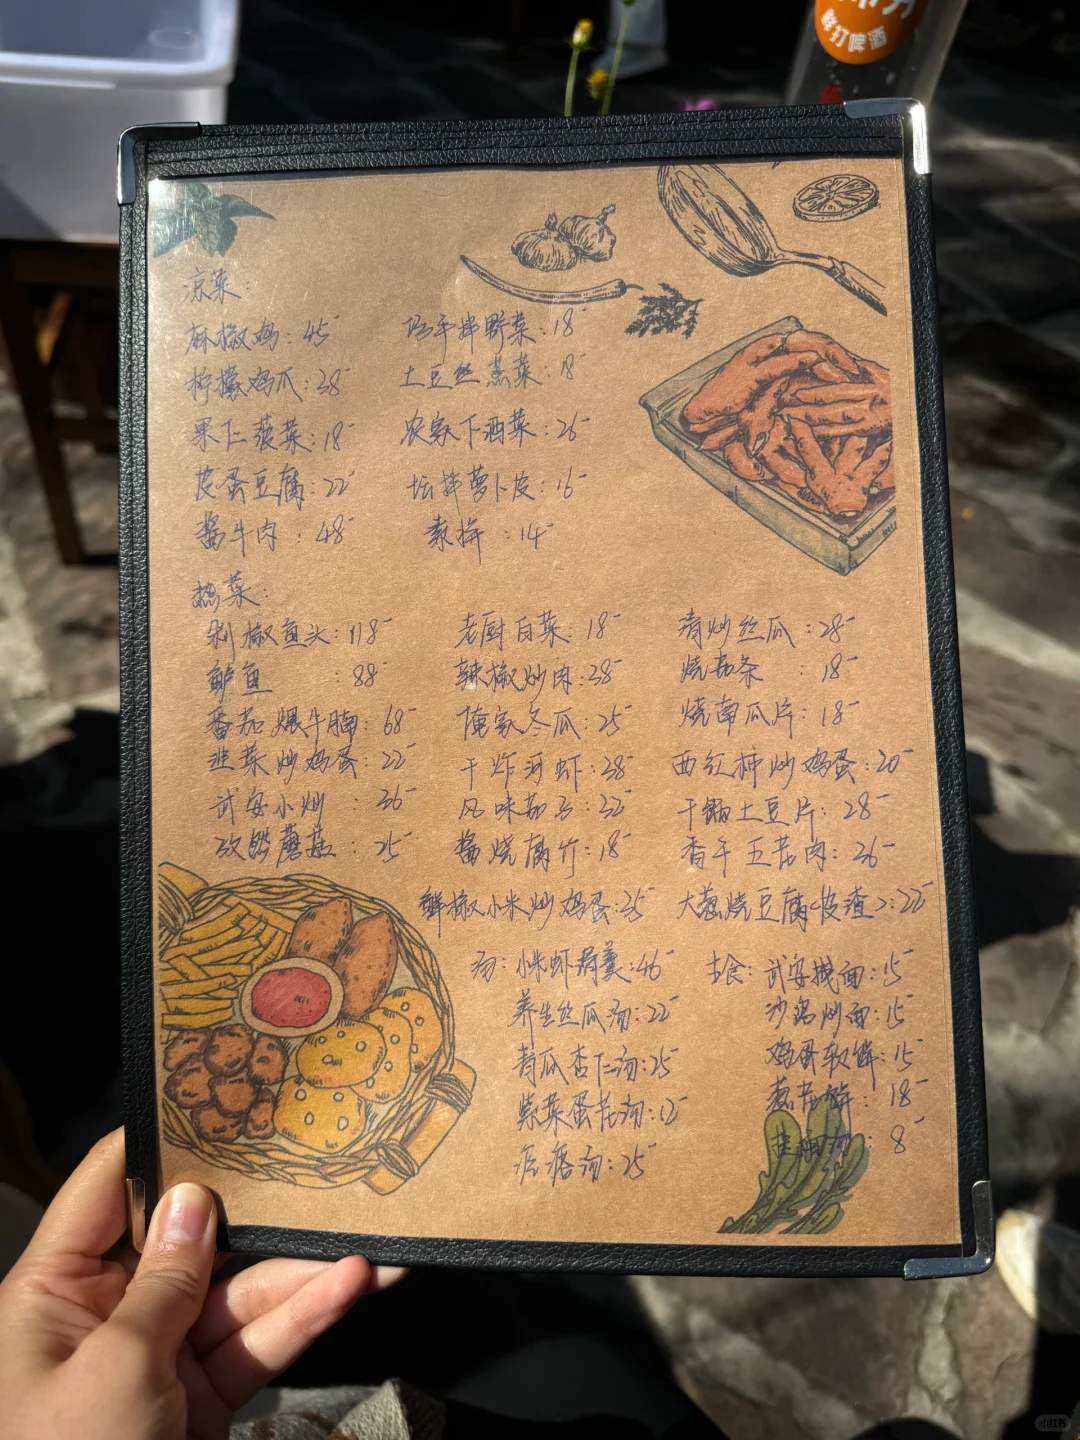 鲜打啤酒
凉菜:
麻椒鸡:45- 巧手拌野菜:18-
柠檬鸡爪:38- 土豆丝蒸菜:18-
果仁菠菜:18- 农家下酒菜:26-
皮蛋豆腐:22- 坛拌萝卜皮:16-
酱牛肉:48- 素拼:14-
热菜:
剁椒鱼头:118- 老厨白菜:18- 清炒丝瓜:28-
鲈鱼:88- 辣椒炒肉:38- 烧茄条:18-
番茄煨牛腩:68- 俺家冬瓜:25- 烧南瓜片:18-
韭菜炒鸡蛋:22- 干炸河虾:38- 西红柿炒鸡蛋:20-
武安小炒:36- 风味茄子:32- 干锅土豆片:28-
孜然蘑菇:25- 酱烧腐竹:18- 香干五花肉:26-
鲜椒小米炒鸡蛋:25- 大葱烧豆腐<皮渣>:22-
汤:小米虾 羹:46- 主食:武安拽面:15-
养生丝瓜汤:22- 沙洺炒面:15-
青瓜杏仁汤:25- 鸡蛋软饼:15-
紫菜蛋花汤:12- 葱花饼:18-
疙瘩汤:25- 8-
小红书